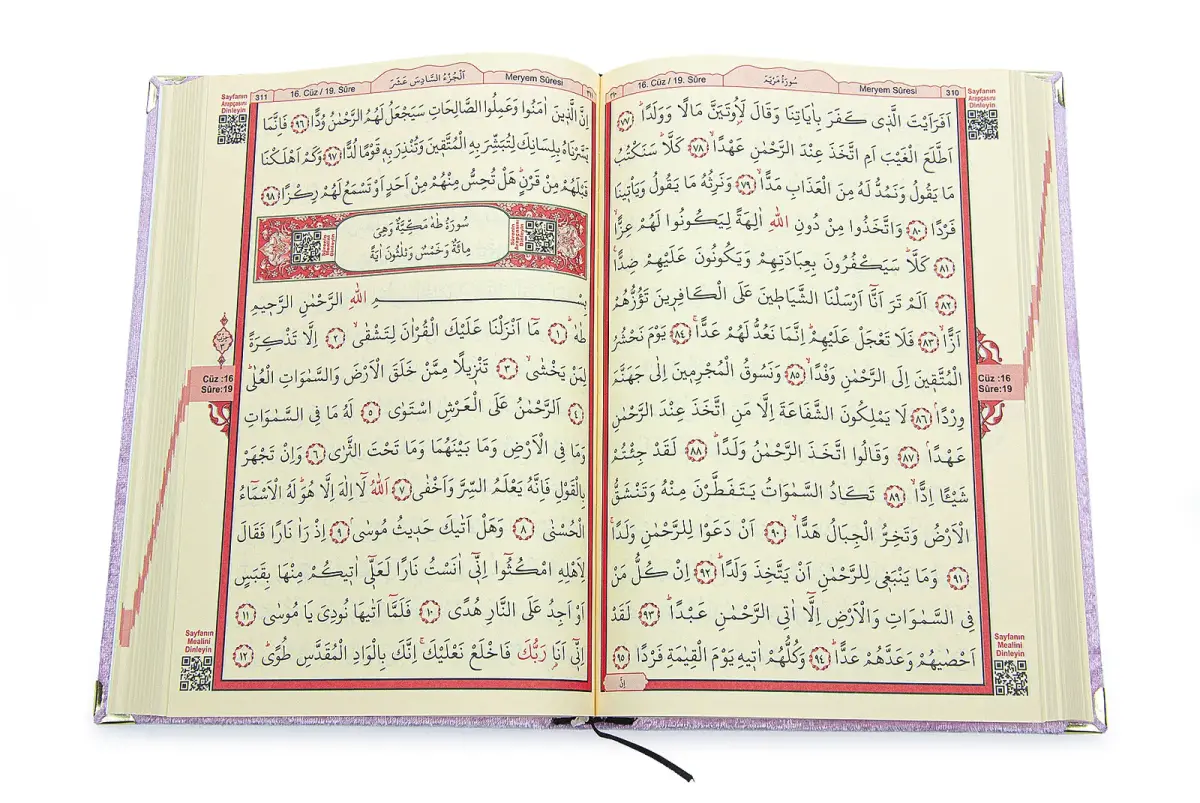 سُورَةُ مَرْيَمَ
16. Cüz / 19. Sûre
Meryem Sûresi
310
Sayfanın
Arapçasını
Dinleyin
اَفَرَاَيْتَ الَّذٖى كَفَرَ بِاٰيَاتِنَا وَقَالَ لَاُوتَيَنَّ مَالًا وَوَلَدًاؕ ﴿٧٧﴾
اَطَّلَعَ الْغَيْبَ اَمِ اتَّخَذَ عِنْدَ الرَّحْمٰنِ عَهْدًاۙ ﴿٧٨﴾ كَلَّاؕ سَنَكْتُبُ
مَا يَقُولُ وَنَمُدُّ لَهُ مِنَ الْعَذَابِ مَدًّاۙ ﴿٧٩﴾ وَنَرِثُهُ مَا يَقُولُ وَيَاْتٖينَا
فَرْدًا ﴿٨٠﴾ وَاتَّخَذُوا مِنْ دُونِ اللّٰهِ اٰلِهَةً لِيَكُونُوا لَهُمْ عِزًّاۙ
﴿٨١﴾ كَلَّاؕ سَيَكْفُرُونَ بِعِبَادَتِهِمْ وَيَكُونُونَ عَلَيْهِمْ ضِدًّا۟
﴿٨٢﴾ اَلَمْ تَرَ اَنَّٓا اَرْسَلْنَا الشَّيَاطٖينَ عَلَى الْكَافِرٖينَ تَؤُزُّهُمْ
اَزًّاۙ ﴿٨٣﴾ فَلَا تَعْجَلْ عَلَيْهِمْؕ اِنَّمَا نَعُدُّ لَهُمْ عَدًّاۚ ﴿٨٤﴾ يَوْمَ نَحْشُرُ
الْمُتَّقٖينَ اِلَى الرَّحْمٰنِ وَفْدًاۙ ﴿٨٥﴾ وَنَسُوقُ الْمُجْرِمٖينَ اِلٰى جَهَنَّمَ
وِرْدًاۘ ﴿٨٦﴾ لَا يَمْلِكُونَ الشَّفَاعَةَ اِلَّا مَنِ اتَّخَذَ عِنْدَ الرَّحْمٰنِ
عَهْدًاۘ ﴿٨٧﴾ وَقَالُوا اتَّخَذَ الرَّحْمٰنُ وَلَدًاؕ ﴿٨٨﴾ لَقَدْ جِئْتُمْ
شَيْـًٔا اِدًّاۙ ﴿٨٩﴾ تَكَادُ السَّمٰوَاتُ يَتَفَطَّرْنَ مِنْهُ وَتَنْشَقُّ
الْاَرْضُ وَتَخِرُّ الْجِبَالُ هَدًّاۙ ﴿٩٠﴾ اَنْ دَعَوْا لِلرَّحْمٰنِ وَلَدًاۚ
﴿٩١﴾ وَمَا يَنْبَغٖى لِلرَّحْمٰنِ اَنْ يَتَّخِذَ وَلَدًاؕ ﴿٩٢﴾ اِنْ كُلُّ مَنْ
فِى السَّمٰوَاتِ وَالْاَرْضِ اِلَّٓا اٰتِى الرَّحْمٰنِ عَبْدًاؕ ﴿٩٣﴾ لَقَدْ
اَحْصٰيهُمْ وَعَدَّهُمْ عَدًّاؕ ﴿٩٤﴾ وَكُلُّهُمْ اٰتٖيهِ يَوْمَ الْقِيٰمَةِ فَرْدًا ﴿٩٥﴾
اِنَّ
Cüz :16
Sûre:19
Sayfanın
Mealini
Dinleyin
Meryem Sûresi
اَلْجُزْءُ السَّادِسَ عَشَرَ
16. Cüz / 19. Sûre
311
Sayfanın
Arapçasını
Dinleyin
اِنَّ الَّذٖينَ اٰمَنُوا وَعَمِلُوا الصَّالِحَاتِ سَيَجْعَلُ لَهُمُ الرَّحْمٰنُ وُدًّا ﴿٩٦﴾ فَاِنَّمَا
يَسَّرْنَاهُ بِلِسَانِكَ لِتُبَشِّرَ بِهِ الْمُتَّقٖينَ وَتُنْذِرَ بِهٖ قَوْمًا لُدًّا ﴿٩٧﴾ وَكَمْ اَهْلَكْنَا
قَبْلَهُمْ مِنْ قَرْنٍؕ هَلْ تُحِسُّ مِنْهُمْ مِنْ اَحَدٍ اَوْ تَسْمَعُ لَهُمْ رِكْزًا ﴿٩٨﴾
سُورَةُ طٰهٰ مَكِّيَّةٌ وَهِىَ
مِائَةٌ وَخَمْسٌ وَثَلٰثُونَ اٰيَةً
بِسْمِ اللّٰهِ الرَّحْمٰنِ الرَّحٖيمِ
طٰهٰۚ ﴿١﴾ مَٓا اَنْزَلْنَا عَلَيْكَ الْقُرْاٰنَ لِتَشْقٰىۙ ﴿٢﴾ اِلَّا تَذْكِرَةً
لِمَنْ يَخْشٰىۙ ﴿٣﴾ تَنْزٖيلًا مِمَّنْ خَلَقَ الْاَرْضَ وَالسَّمٰوَاتِ الْعُلٰىؕ
﴿٤﴾ اَلرَّحْمٰنُ عَلَى الْعَرْشِ اسْتَوٰى ﴿٥﴾ لَهُ مَا فِى السَّمٰوَاتِ
وَمَا فِى الْاَرْضِ وَمَا بَيْنَهُمَا وَمَا تَحْتَ الثَّرٰى ﴿٦﴾ وَاِنْ تَجْهَرْ
بِالْقَوْلِ فَاِنَّهُ يَعْلَمُ السِّرَّ وَاَخْفٰى ﴿٧﴾ اَللّٰهُ لَٓا اِلٰهَ اِلَّا هُوَؕ لَهُ الْاَسْمَٓاءُ
الْحُسْنٰى ﴿٨﴾ وَهَلْ اَتٰيكَ حَدٖيثُ مُوسٰىۘ ﴿٩﴾ اِذْ رَاٰ نَارًا فَقَالَ
لِاَهْلِهِ امْكُثُٓوا اِنّٖٓى اٰنَسْتُ نَارًا لَعَلّٖٓى اٰتٖيكُمْ مِنْهَا بِقَبَسٍ
اَوْ اَجِدُ عَلَى النَّارِ هُدًى ﴿١٠﴾ فَلَمَّٓا اَتٰيهَا نُودِىَ يَا مُوسٰى ﴿١١﴾
اِنّٖٓى اَنَا۬ رَبُّكَ فَاخْلَعْ نَعْلَيْكَۚ اِنَّكَ بِالْوَادِ الْمُقَدَّسِ طُوًىؕ ﴿١٢﴾
Cüz :16
Sûre:19
Sayfanın
Mealini
Dinleyin